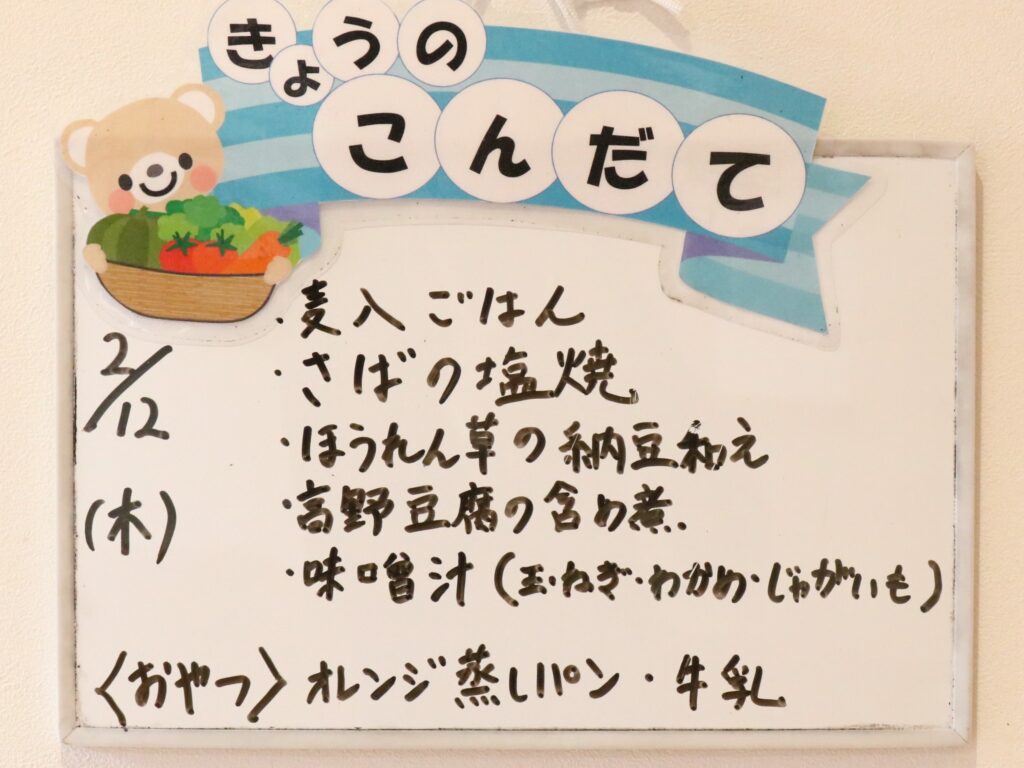 きょうの
こんだて
2/12
(木)
・麦入ごはん
・さばの塩焼
・ほうれん草の納豆和え
・高野豆腐の含め煮
・味噌汁(玉ねぎ・わかめ・じゃがいも)
〈おやつ〉オレンジ蒸しパン・牛乳